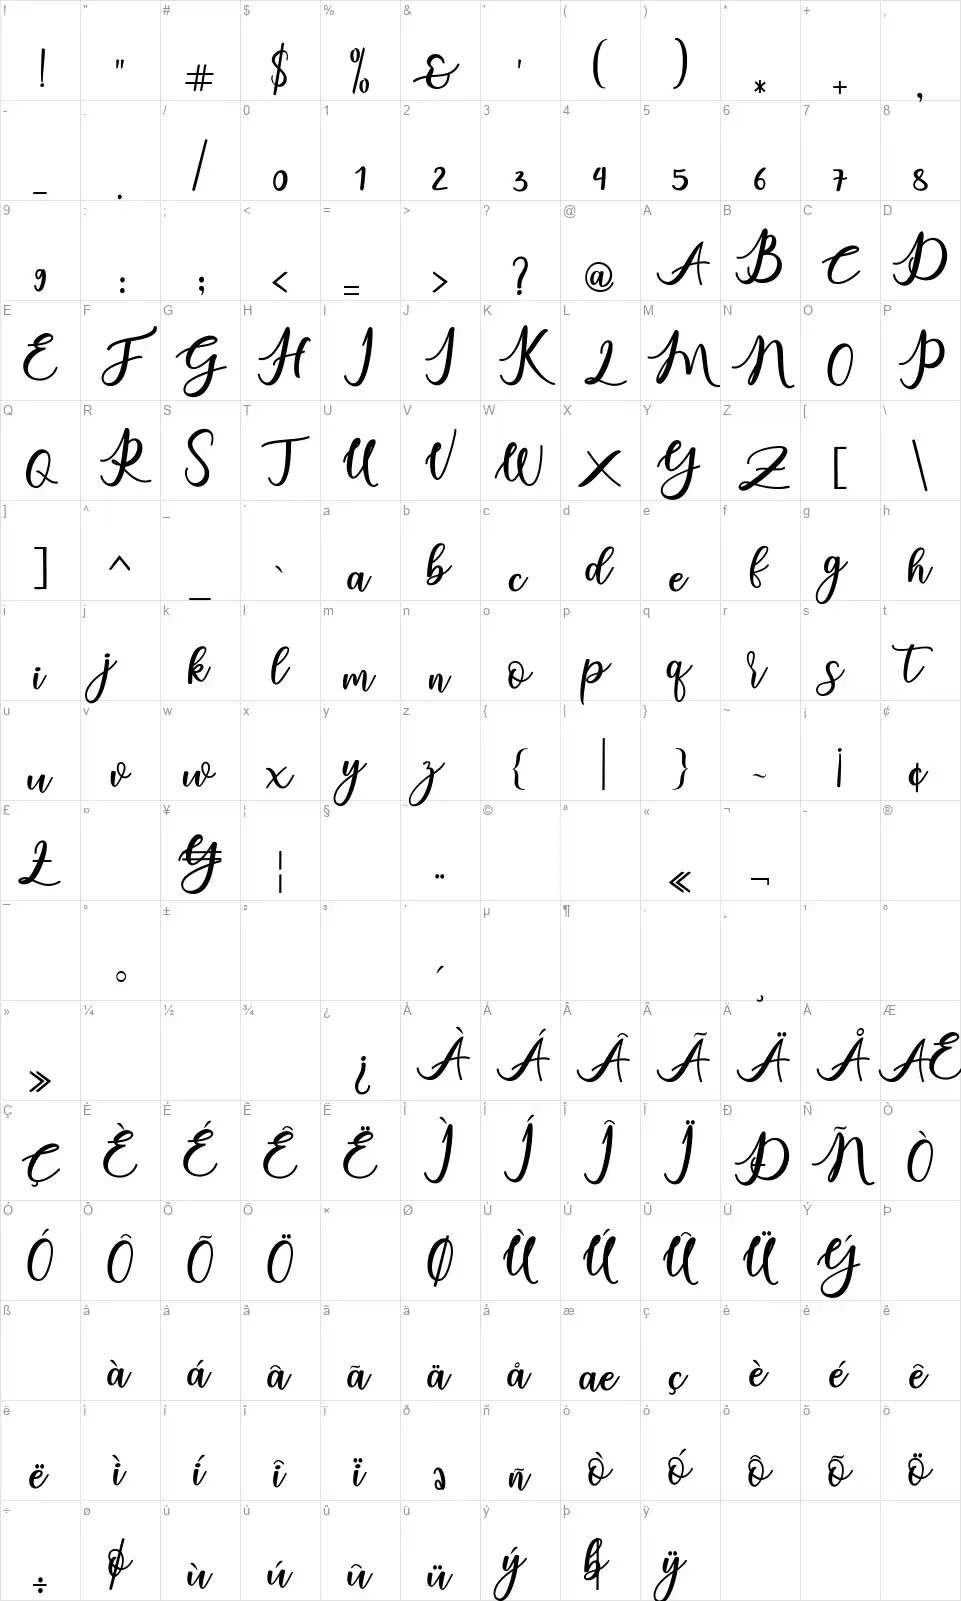 ! " # $ % & ' ( ) * + ,
! " # $ % & ' ( ) * + ,
- . / 0 1 2 3 4 5 6 7 8
- . / 0 1 2 3 4 5 6 7 8
9 : ; < = > ? @ A B C D
9 : ; < = > ? @ A B C D
E F G H I J K L M N O P
E F G H I J K L M N O P
Q R S T U V W X Y Z [ \
Q R S T U V W X Y Z [ \
] ^ _ ` a b c d e f g h
] ^ _ ` a b c d e f g h
i j k l m n o p q r s t
i j k l m n o p q r s t
u v w x y z { | } ~ ¡ ¢
u v w x y z { | } ~ ¡ ¢
£ ¤ ¥ ¦ § ¨ © ª « ¬ - ®
£ ¥ ¦ ¨ « ¬
¯ ° ± ² ³ ´ µ ¶ · ¸ ¹ º
° ´ ¸
» ¼ ½ ¾ ¿ À Á Â Ã Ä Å Æ
» ¿ À Á Â Ã Ä Å Æ
Ç È É Ê Ë Ì Í Î Ï Ð Ñ Ò
Ç È É Ê Ë Ì Í Î Ï Ð Ñ Ò
Ó Ô Õ Ö × Ø Ù Ú Û Ü Ý Þ
Ó Ô Õ Ö Ø Ù Ú Û Ü Ý
ß à á â ã ä å æ ç è é ê
à á â ã ä å æ ç è é ê
ë ì í î ï ð ñ ò ó ô õ ö
ë ì í î ï ə ñ ò ó ô õ ö
÷ ø ù ú û ü ý þ ÿ
÷ ø ù ú û ü ý þ ÿ